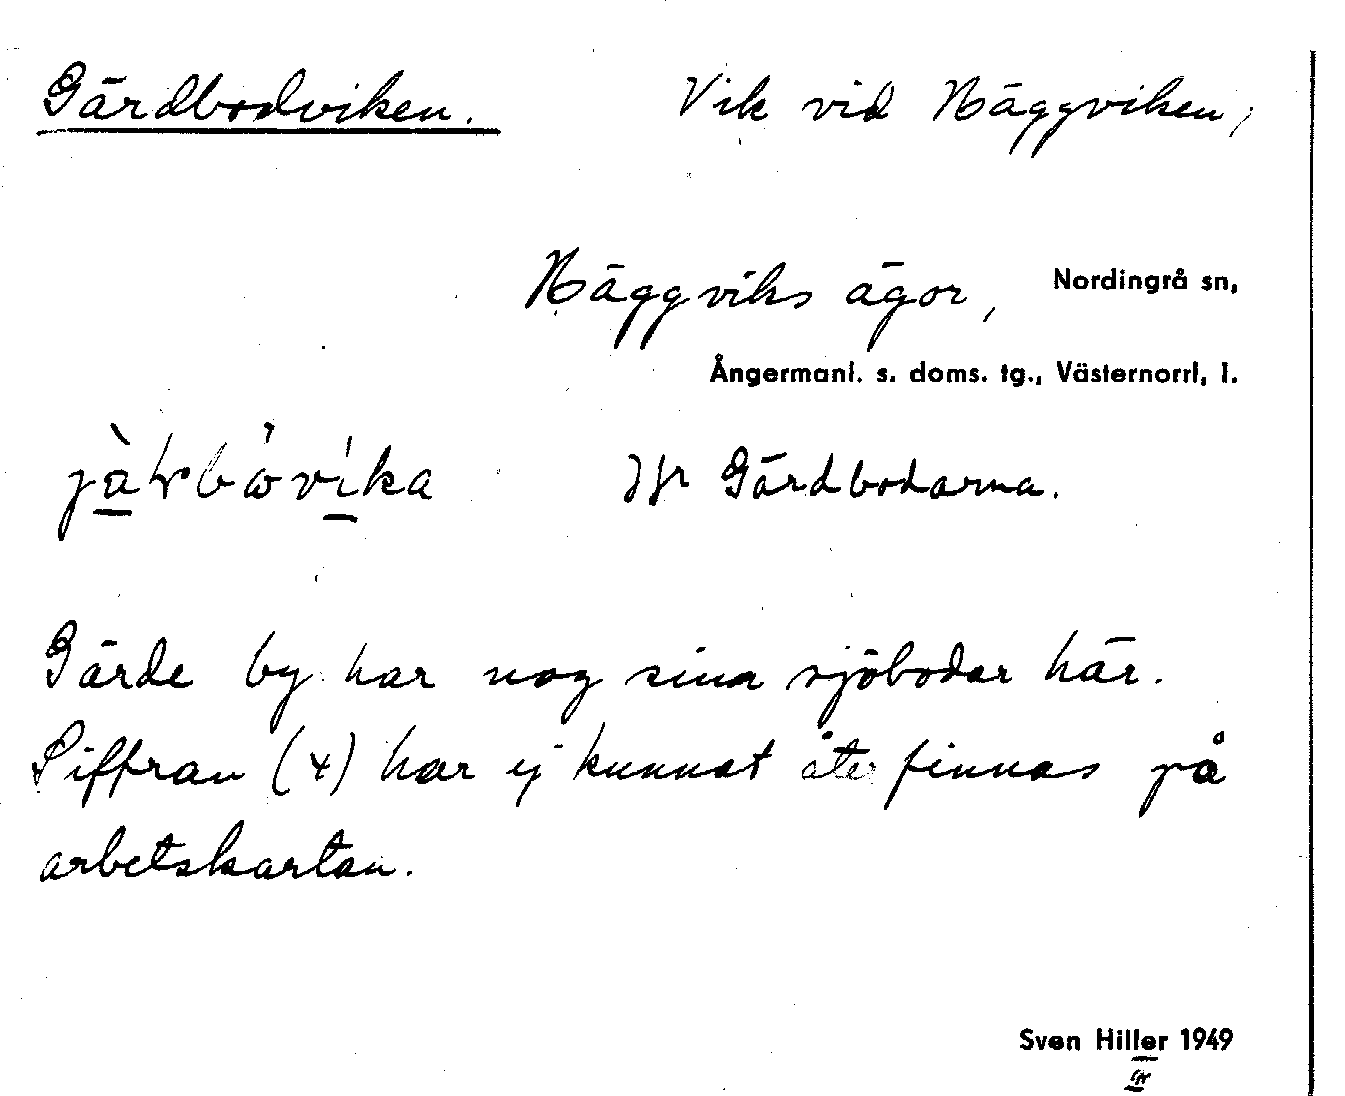 Gärdbodviken. Vik vid Häggviken,
Häggviks ägor, Nordingrå sn,
Ångermanl. s. doms. tg., Västernorrl, l.
Jfr Gärdbodarna.
Gärde by har nog sina sjöbodar här.
Siffran (4) har ej kunnat återfinnas på
arbetskartan.
Sven Hiller 1949